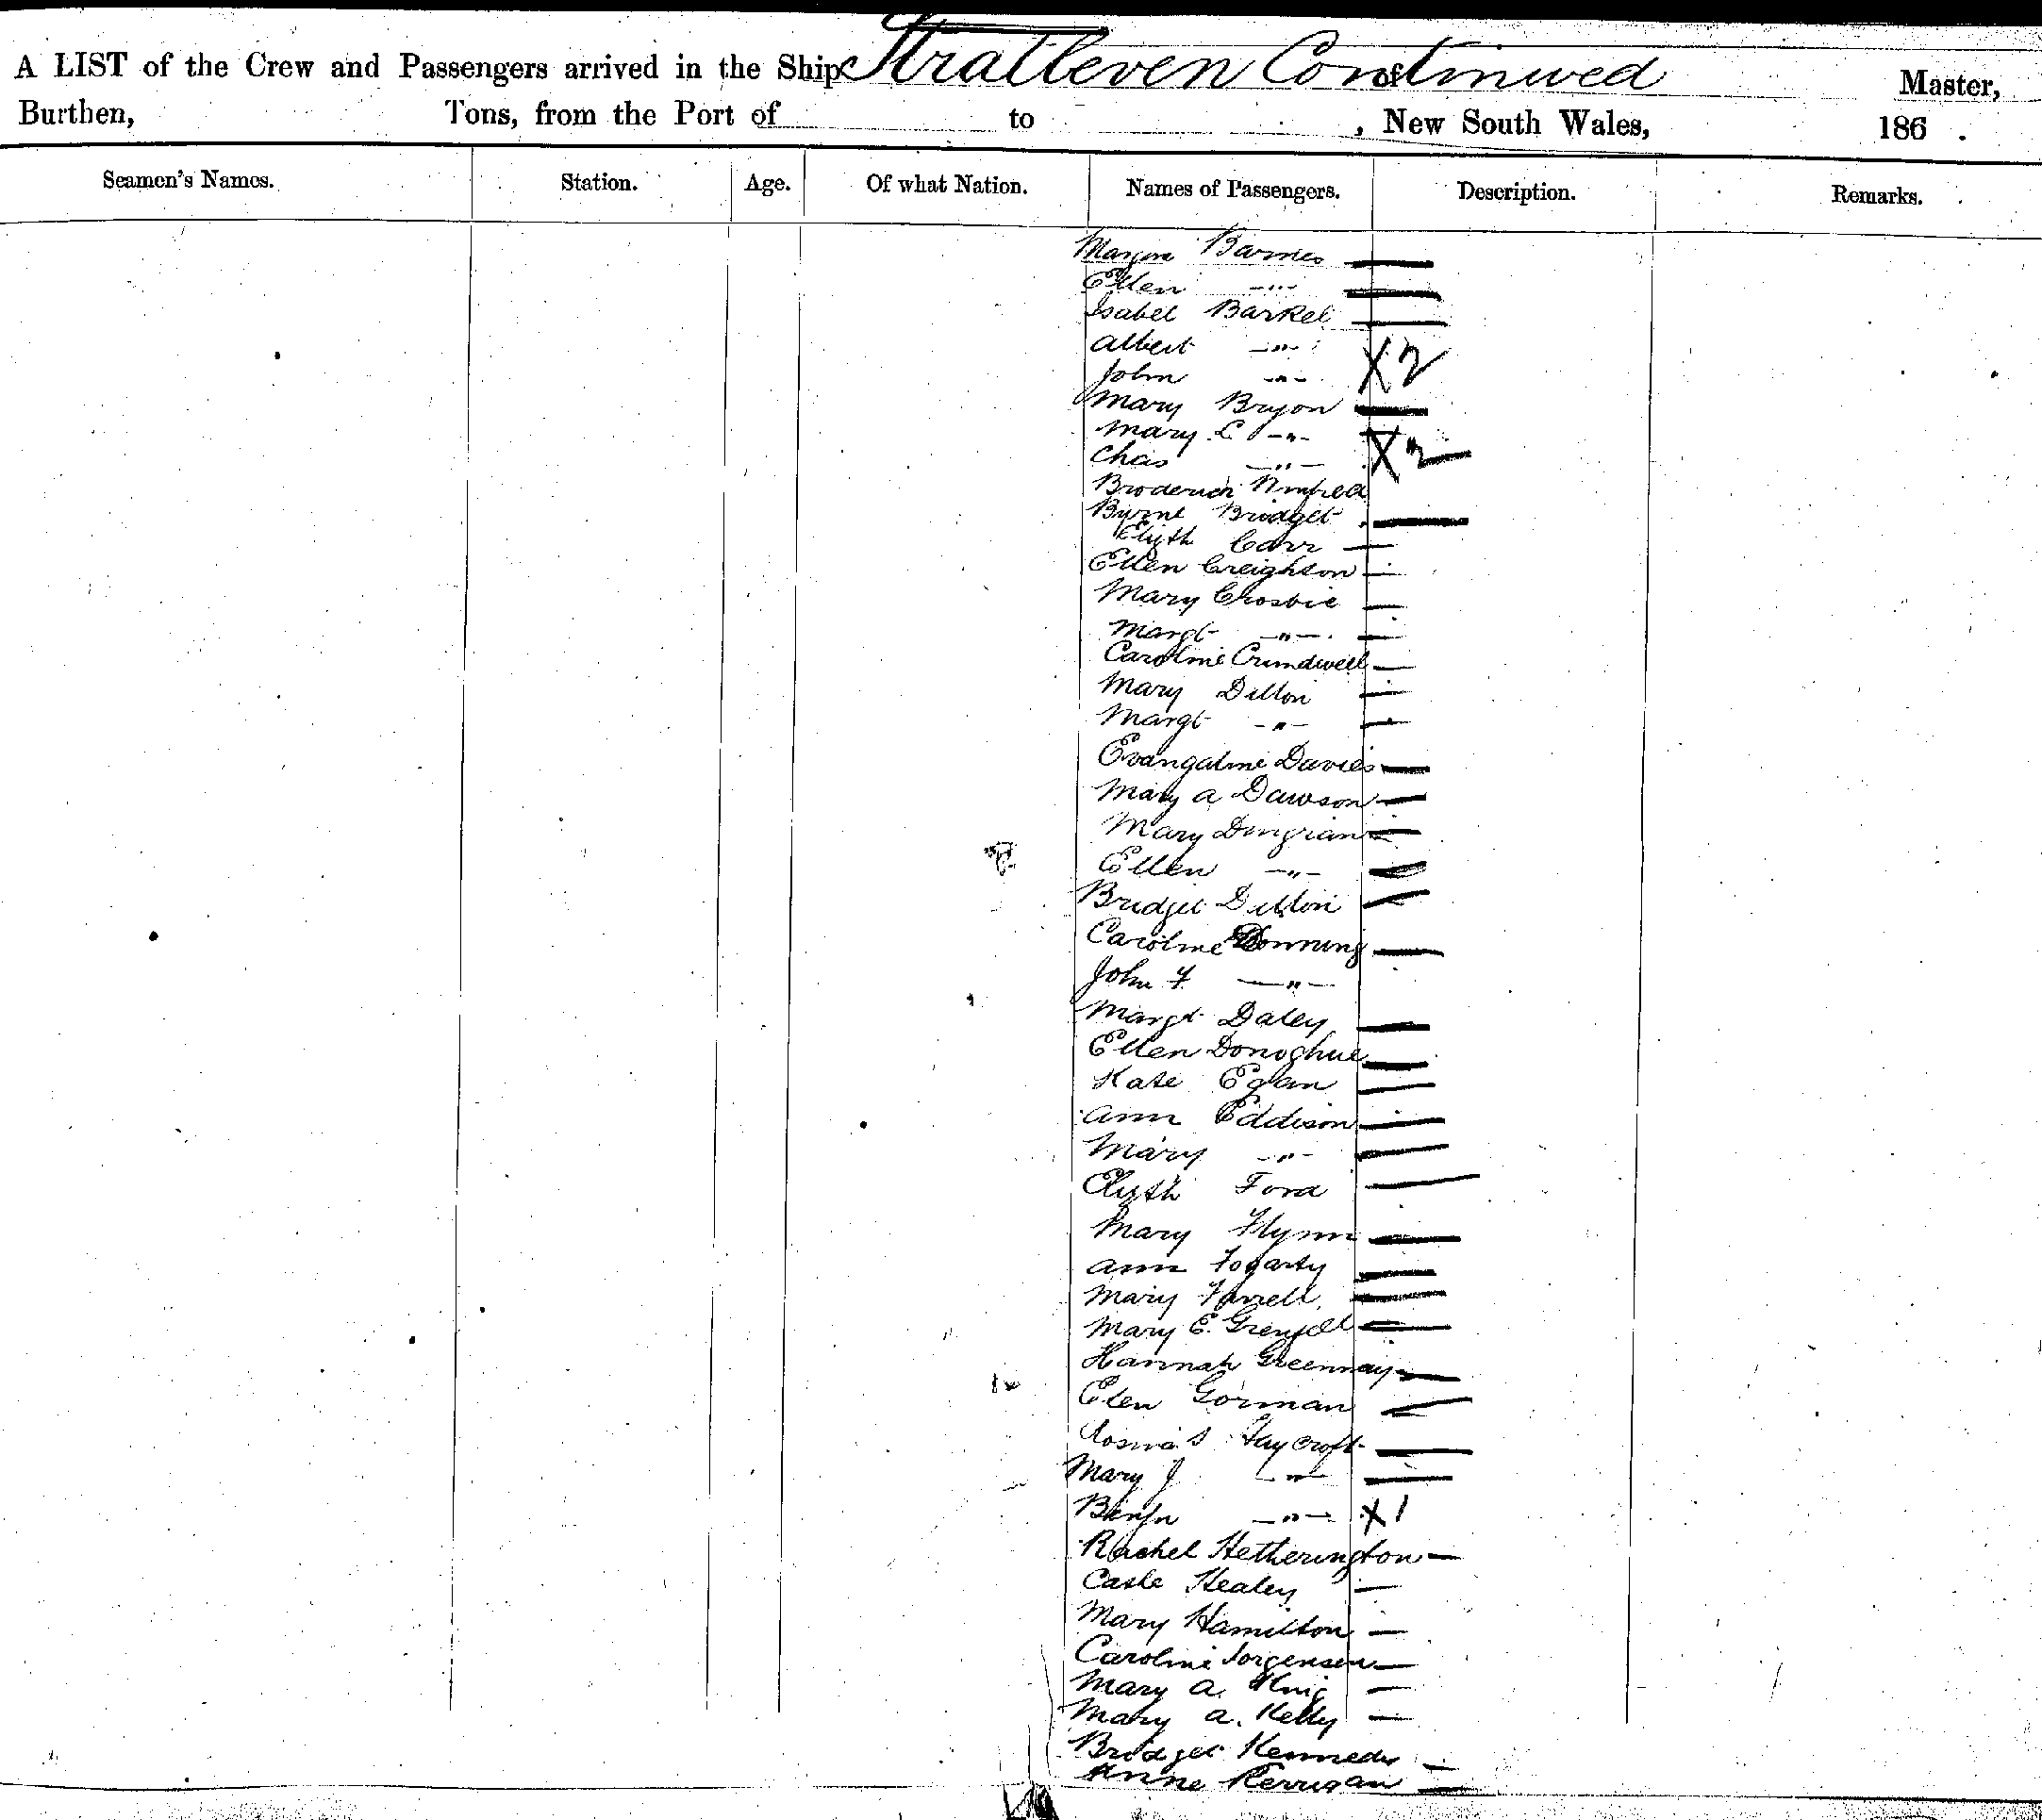 A LIST of the Crew and Passengers arrived in the Ship Strathleven Continued of Master,
Burthen, Tons, from the Port of to , New South Wales, 186 .
Seamen's Names. Station. Age. Of what Nation. Names of Passengers. Description. Remarks.
Barnes
Ellen -"-
Isabel Barkel
Albert -"-
John -"- X2
Mary Bryon
Mary C -"-
Chas -"- X2
Broderick
Byrne Bridget
Elizth Carr
Ellen Creighton
Mary Crosbie
Margt -"-
Caroline Crundwell
Mary Dillon
Margt -"-
Evangaline Davies
Mary A Dawson
Mary
Ellen -"-
Bridget Dillon
Caroline
John F -"-
Margt Daley
Ellen Donoghue
Kate Egan
Ann Eddison
Mary -"-
Elizth Ford
Mary Flynn
Ann Fogarty
Mary Farrell
Mary E. Grenfell
Hannah Greenway
Ellen Gorman
Haycroft
Mary J -"-
Benjn -"- X1
Rachel Hetherington
Cathe Healey
Mary Hamilton
Caroline Jorgensen
Mary A. King
Mary A. Kelly
Bridget Kennedy
Anne Kerrigan